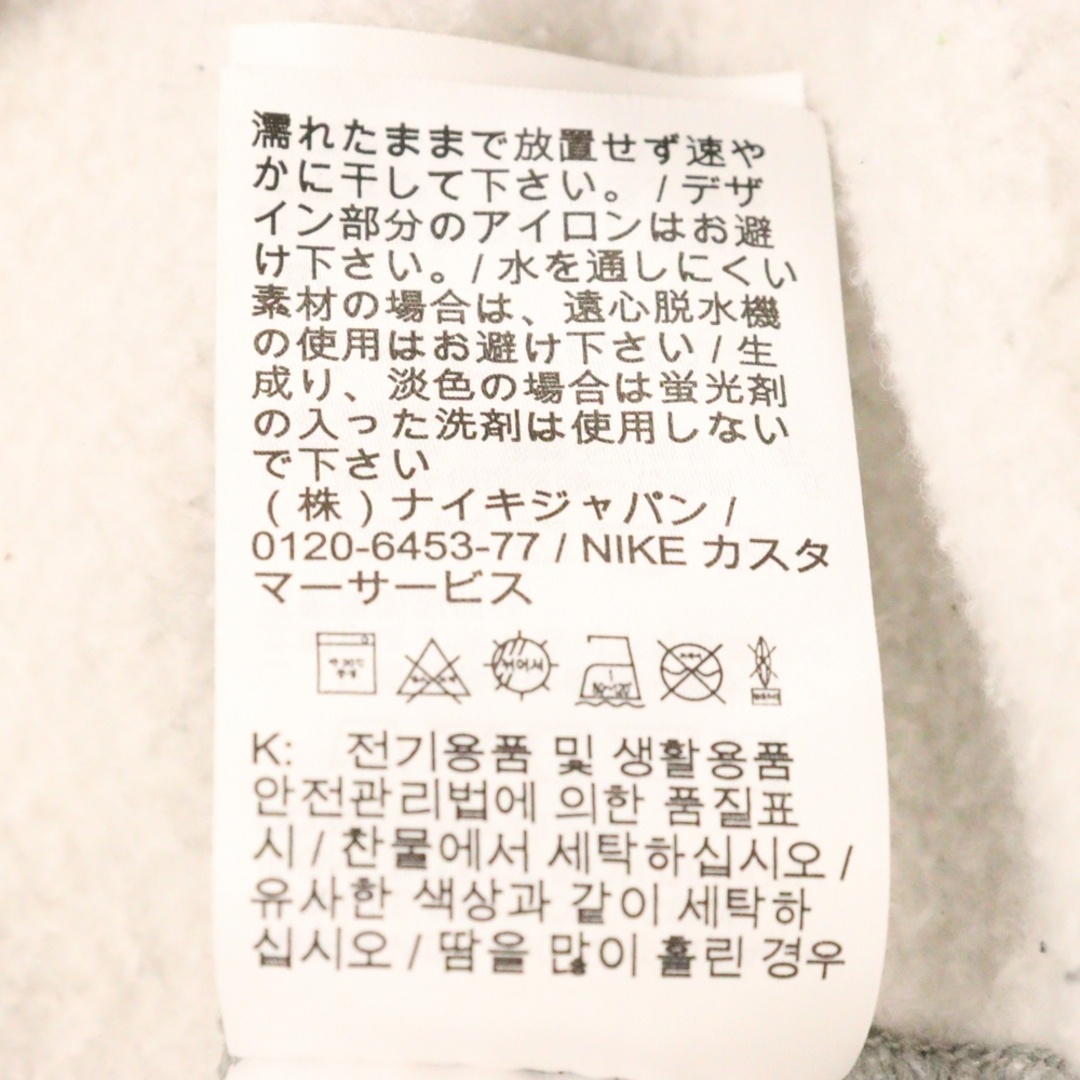 濡れたままで放置せず速や
かに干して下さい。 / デザ
イン部分のアイロンはお避
け下さい。/ 水を通しにくい
素材の場合は、遠心脱水機
の使用はお避け下さい / 生
成り、淡色の場合は蛍光剤
の入った洗剤は使用しない
で下さい
(株)ナイキジャパン /
0120-6453-77 / NIKE カスタ
マーサービス
K: 전기용품 및 생활용품
안전관리법에 의한 품질표
시 / 찬물에서 세탁하십시오 /
유사한 색상과 같이 세탁하
십시오 / 땀을 많이 흘린 경우